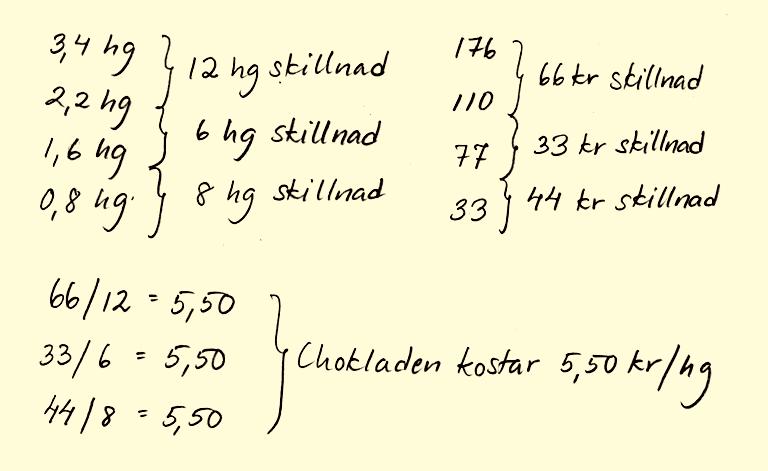 3,4 hg 12 hg skillnad 176 66 kr skillnad
2,2 hg 110
1,6 hg 6 hg skillnad 77 33 kr skillnad
0,8 hg 8 hg skillnad 33 44 kr skillnad
66/12 = 5,50
33/6 = 5,50 Chokladen kostar 5,50 kr/hg
44/8 = 5,50